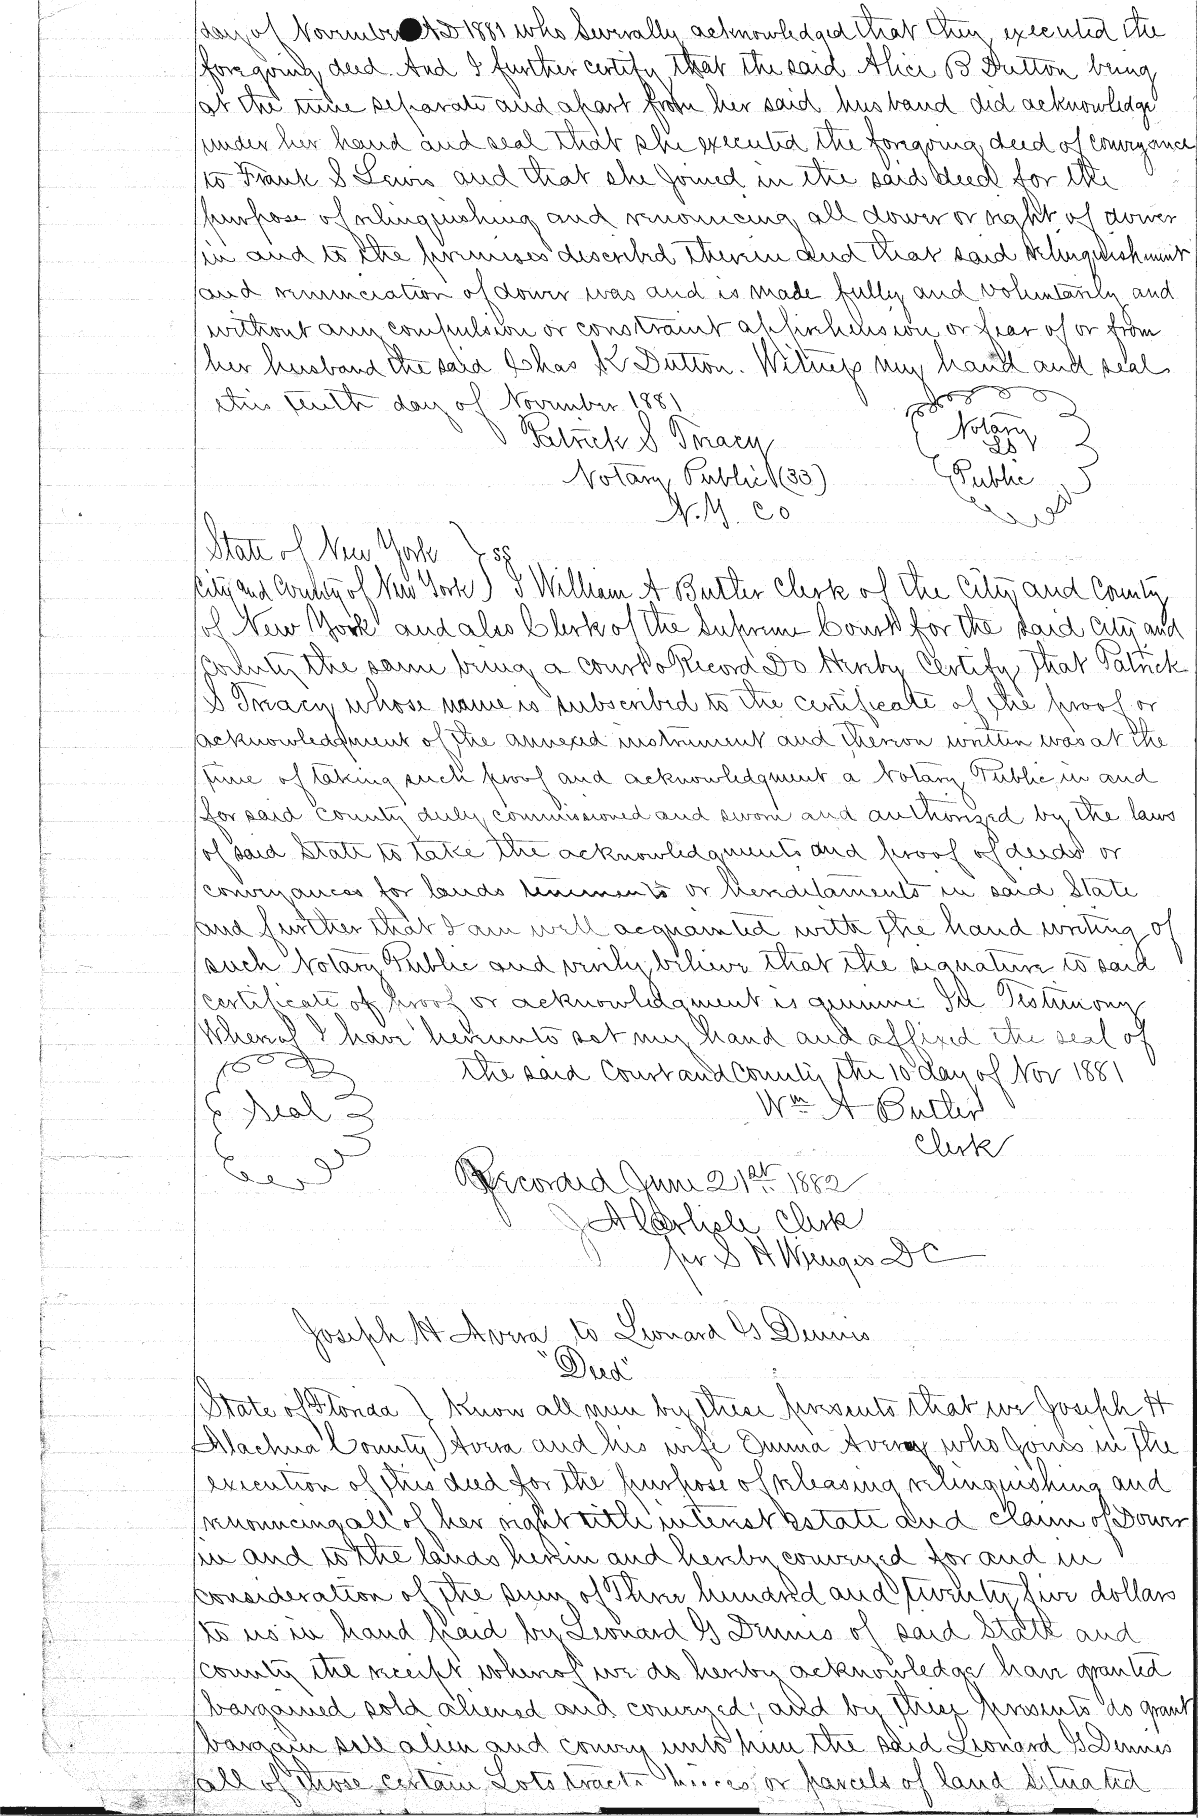 day of November AD 1881 who Severally acknowledged that they executed the
foregoing deed. And I further certify that the said Alice B Dutton being
at the time separate and apart from her said husband did acknowledge
under her hand and seal that she executed the foregoing deed of conveyance
to Frank S Lewis and that she joined in the said deed for the
purpose of relinquishing and renouncing all dower or right of dower
in and to the premises described therein and that said relinquishment
and renunciation of dower was and is made fully and voluntarily and
without any compulsion or constraint apprehension or fear of or from
her husband the said Chas K Dutton. Witness my hand and seal
this tenth day of November 1881
Patrick S Treacy
Notary Public (33)
N.Y. Co
Notary
LS
Public
State of New York } ss
City and County of New York ) I William A Butler Clerk of the City and County
of New York and also Clerk of the Supreme Court for the said City and
County the same being a court o Record Do Hereby Certify that Patrick
S Treacy whose name is subscribed to the certificate of the proof or
acknowledgment of the annexed instrument and thereon written was at the
time of taking such proof and acknowledgment a Notary Public in and
for said County duly commissioned and sworn and authorized by the laws
of said State to take the acknowledgments and proof of deeds or
conveyances for lands tenements or hereditaments in said State
and further that I am well acquainted with the hand writing of
such Notary Public and verily believe that the signature to said
certificate of proof or acknowledgment is genuine In Testimony
Whereof I have hereunto set my hand and affixed the seal of
the said Court and County the 10 day of Nov 1881
Seal
Wm A Butler
Clerk
Recorded June 21st 1882
J A Carlisle Clerk
per S H Wienges DC
Joseph H Avera to Leonard G Dennis
"Deed"
State of Florida } Know all men by these presents that we Joseph H
Alachua County ) Avera and his wife Emma Avera who joins in the
execution of this deed for the purpose of releasing relinquishing and
renouncing all of her right title interest Estate and claim of Dower
in and to the lands herein and hereby conveyed for and in
consideration of the sum of Three hundred and twenty five dollars
to us in hand paid by Leonard G Dennis of said State and
County the receipt whereof we do hereby acknowledge have granted
bargained sold aliened and conveyed; and by these presents do grant
bargain sell alien and convey unto him the said Leonard G Dennis
all of those certain Lots tracts pieces or parcels of land Situated